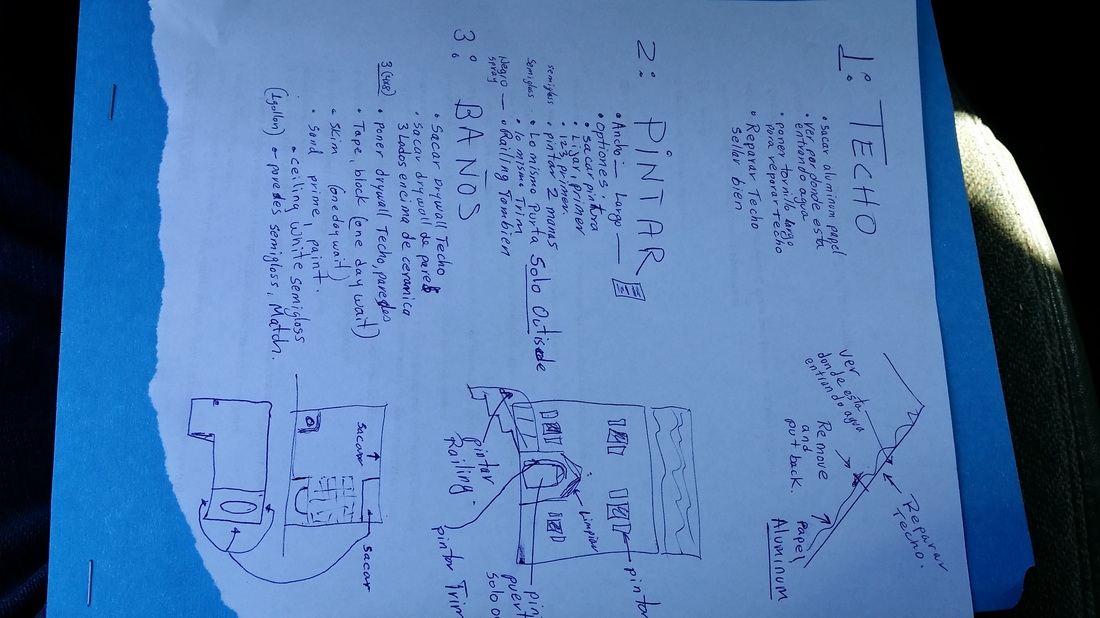 1: TECHO
• sacar aluminum papel
• ver por donde esta
entrando agua
• poner tornillo largo
para reparar Techo
• Reparar Techo
sellar bien
ver
donde esta
entrando agua
Remove
and
put back.
Reparar
Techo.
Papel
Aluminum
2: PINTAR
• Ancho — Largo —
• Optiones:
• Sacar pintura
• Lijar, primer
• 123 primer.
semigloss • pintar 2 manos
Semigloss • Lo mismo Purta Solo Outside
• lo mismo Trim
Negro spray — • Railing Tambien
pintar
Railing.
Limpiar
pintar
pintar Trim
3: BANOS
• Sacar Drywall Techo
• sacar drywall de pared
3 Lados encima de ceramica
3 (4x8) • poner drywall Techo, paredes
• Tape, block (one day wait)
• skim (one day wait)
• sand, prime, paint.
• ceiling white semigloss
(1 gallon) • paredes semigloss, Match.
sacar
sacar